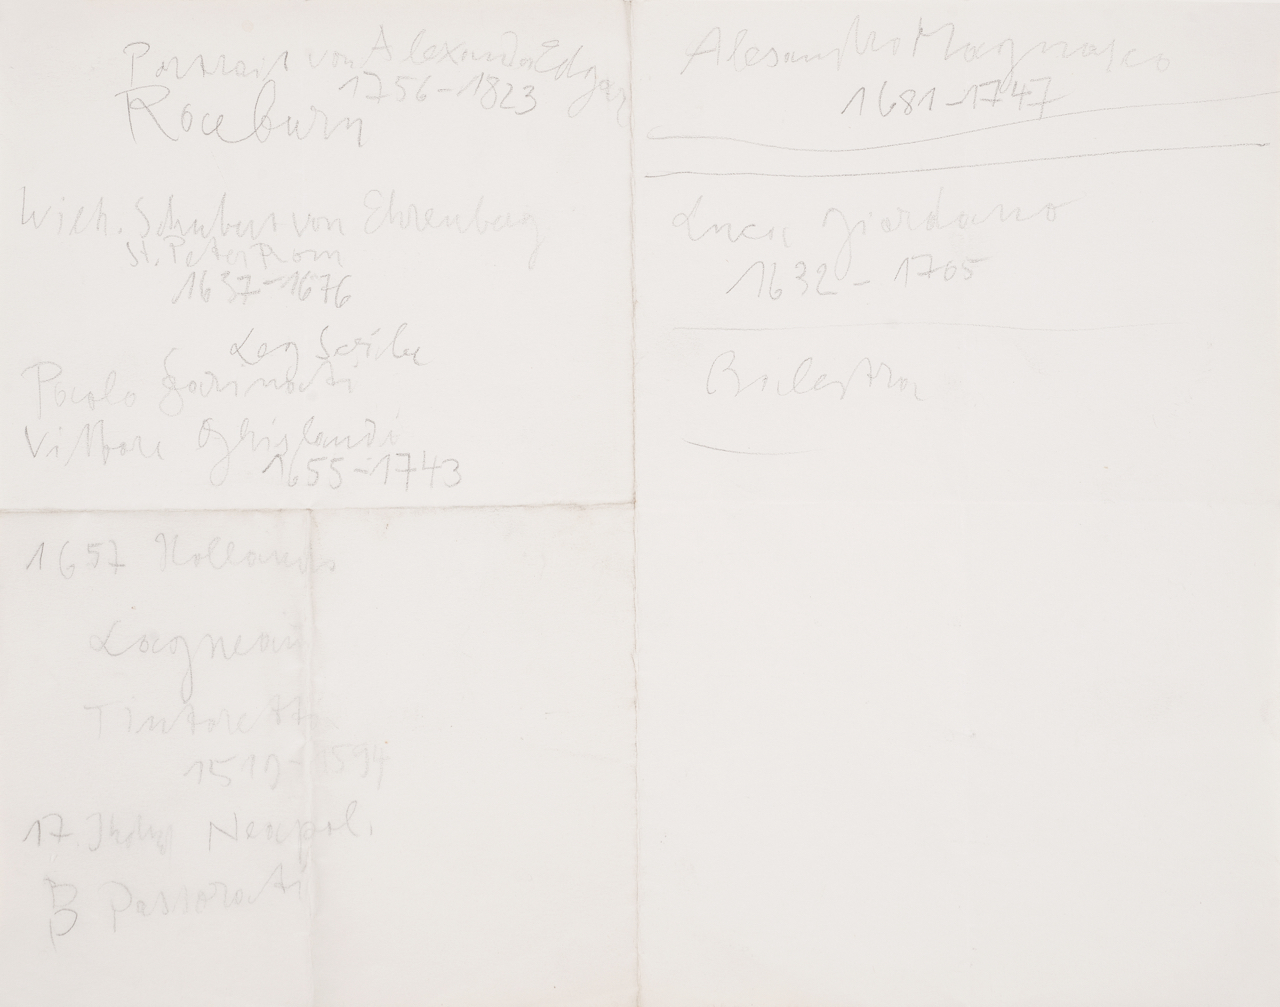 Portrait von Alexander Edgar
1756-1823
Roeburn
Wilh. Schubert von Ehrenberg
St. Peter Rom
1637-1676
Paolo Farinati
Vittore Ghislandi
1655-1743
1657 Holland
Lagneau
Tintoretto
1519-1594
17. Neapol.
B Passoratti
Alesandro Magnasco
1681-1747
Luca Giordano
1632-1705
Balestra